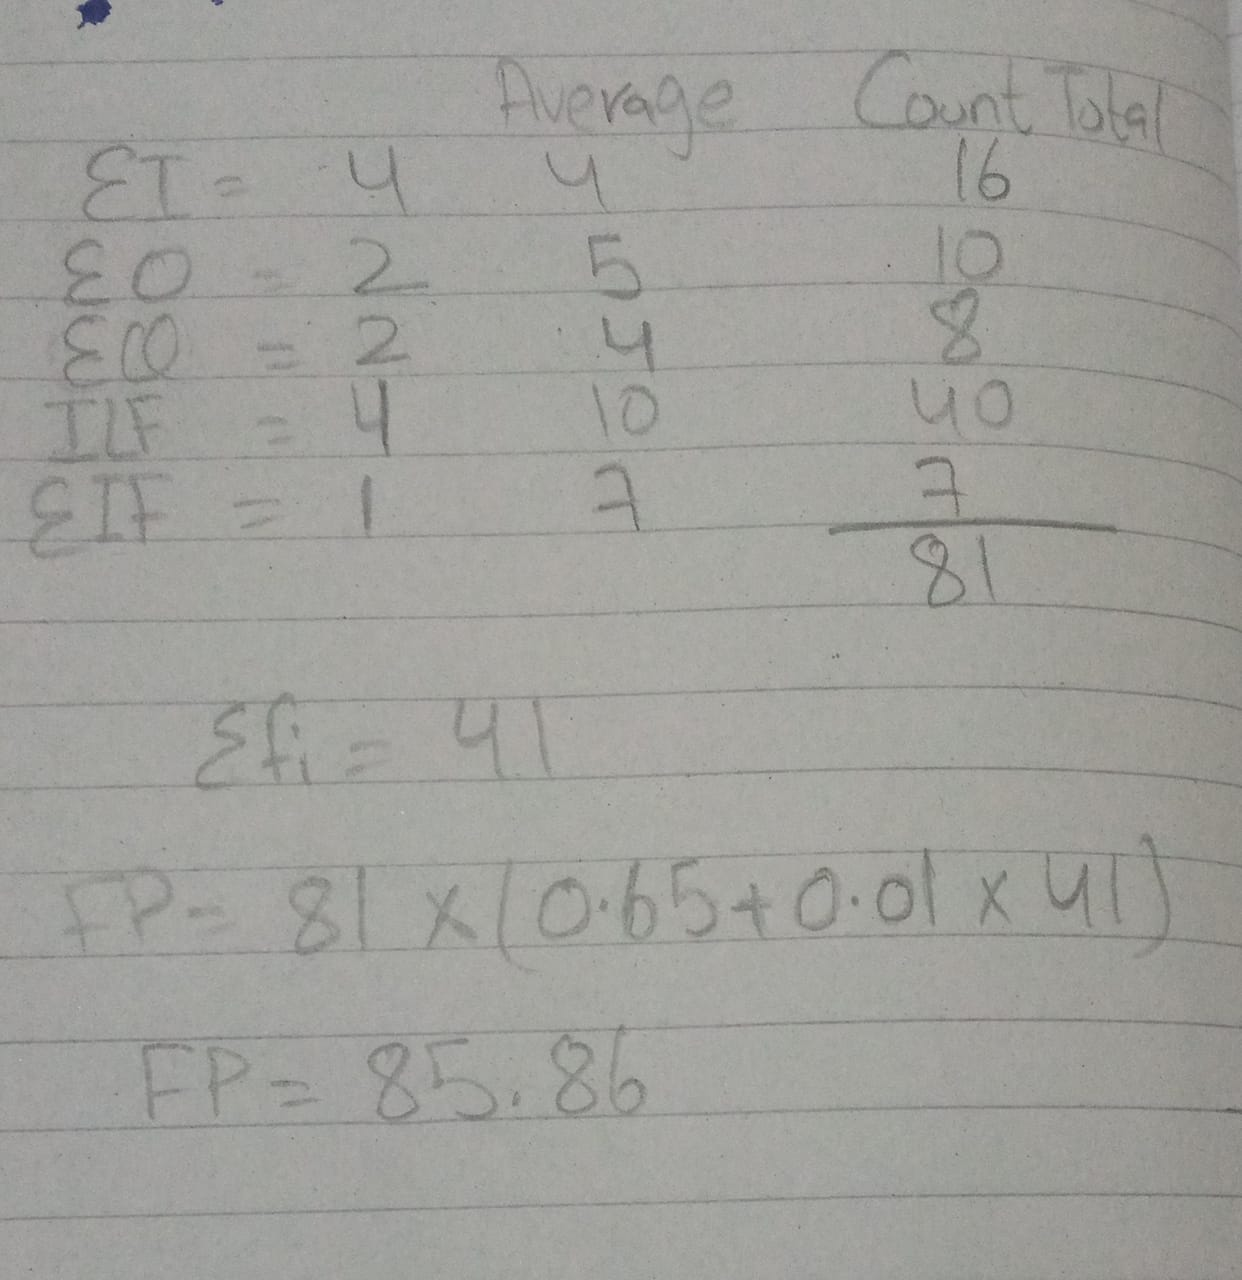 Average Count Total
ƐI = 4 4 16
ƐO = 2 5 10
ƐQ = 2 4 8
ILF = 4 10 40
ƐIF = 1 7 7
81
Σfi = 41
FP = 81 × (0.65 + 0.01 × 41)
FP = 85.86